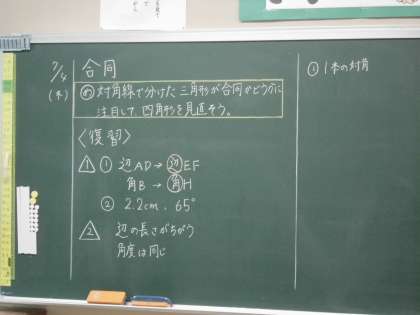 7/4
(木)
合同
め 対角線で分けた三角形が合同かどうかに
注目して、四角形を見直そう。
〈復習〉
1 ① 辺AD→辺EF
角B→角H
② 2.2cm、65°
2 辺の長さがちがう
角度は同じ
① 1本の対角